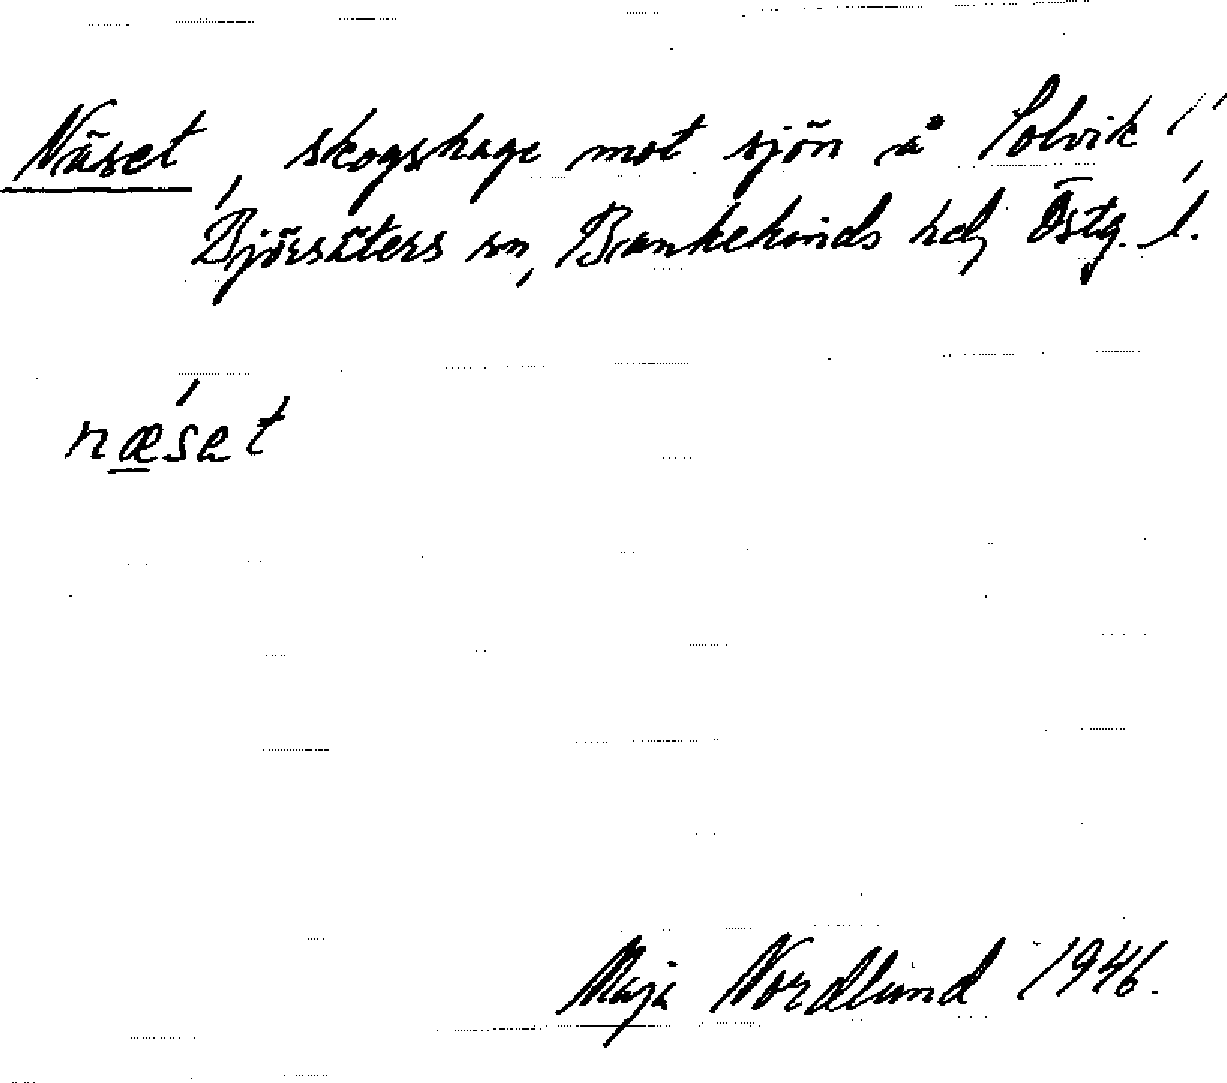 Näset, skogshage mot sjön å Solvik 1'
Björsäters sn, Bankekinds hd, Östg. l.
næ´set
Maja Nordlund 1946.